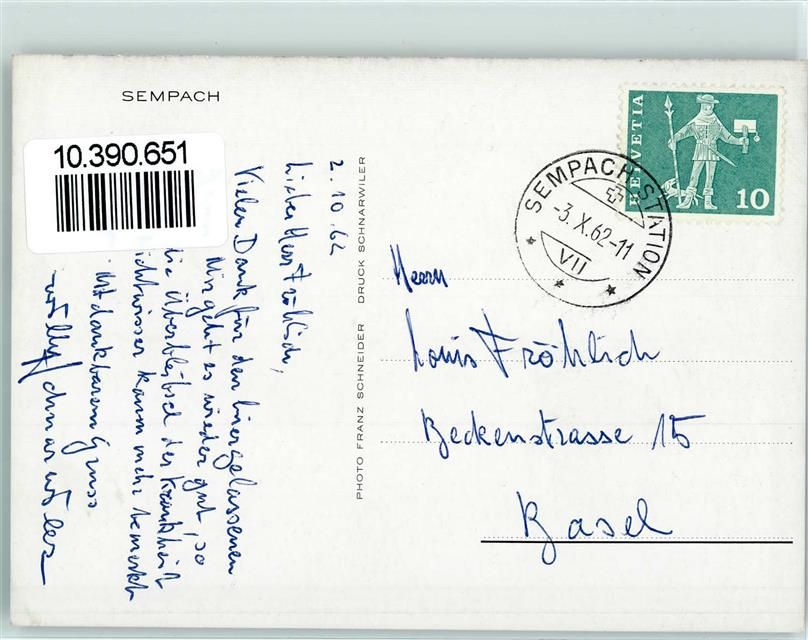 SEMPACH
10.390.651
2. 10. 62
Lieber Herr Fröhlich,
Vielen Dank für den hiergelassenen
Mir geht es wieder gut, so
die Überbleibsel der Krankheit
ichtwisser kaum mehr bemerkt
Mit dankbarem Gruss
Willy Schnarwiler
PHOTO FRANZ SCHNEIDER DRUCK SCHNARWILER
HELVETIA
10
SEMPACH STATION
-3.X.62-11
VII
Herrn
Louis Fröhlich
Beckenstrasse 15
Basel